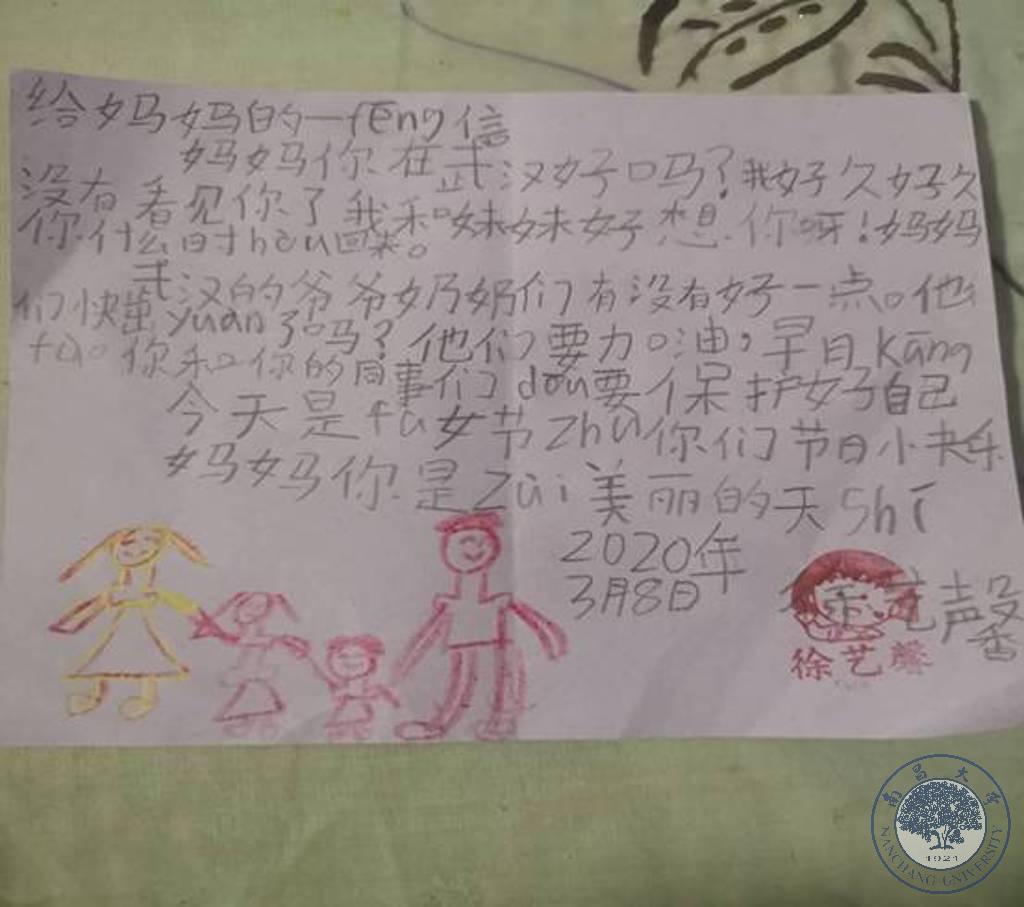 给妈妈的一fēng信
妈妈你在武汉好吗?我好久好久
没有看见你了我和妹妹好想你呀!妈妈
你什么时hòu回来。
武汉的爷爷奶奶们有没有好一点。他
们快出yuàn了吗?他们要加油,早日kāng
fù。你和你的同事们dōu要保护好自己
今天是fù女节zhù你们节日小快乐
妈妈你是zùi美丽的天shǐ
2020年
3月8日
徐艺馨
徐艺馨
南昌大学
NANCHANG UNIVERSITY
1921